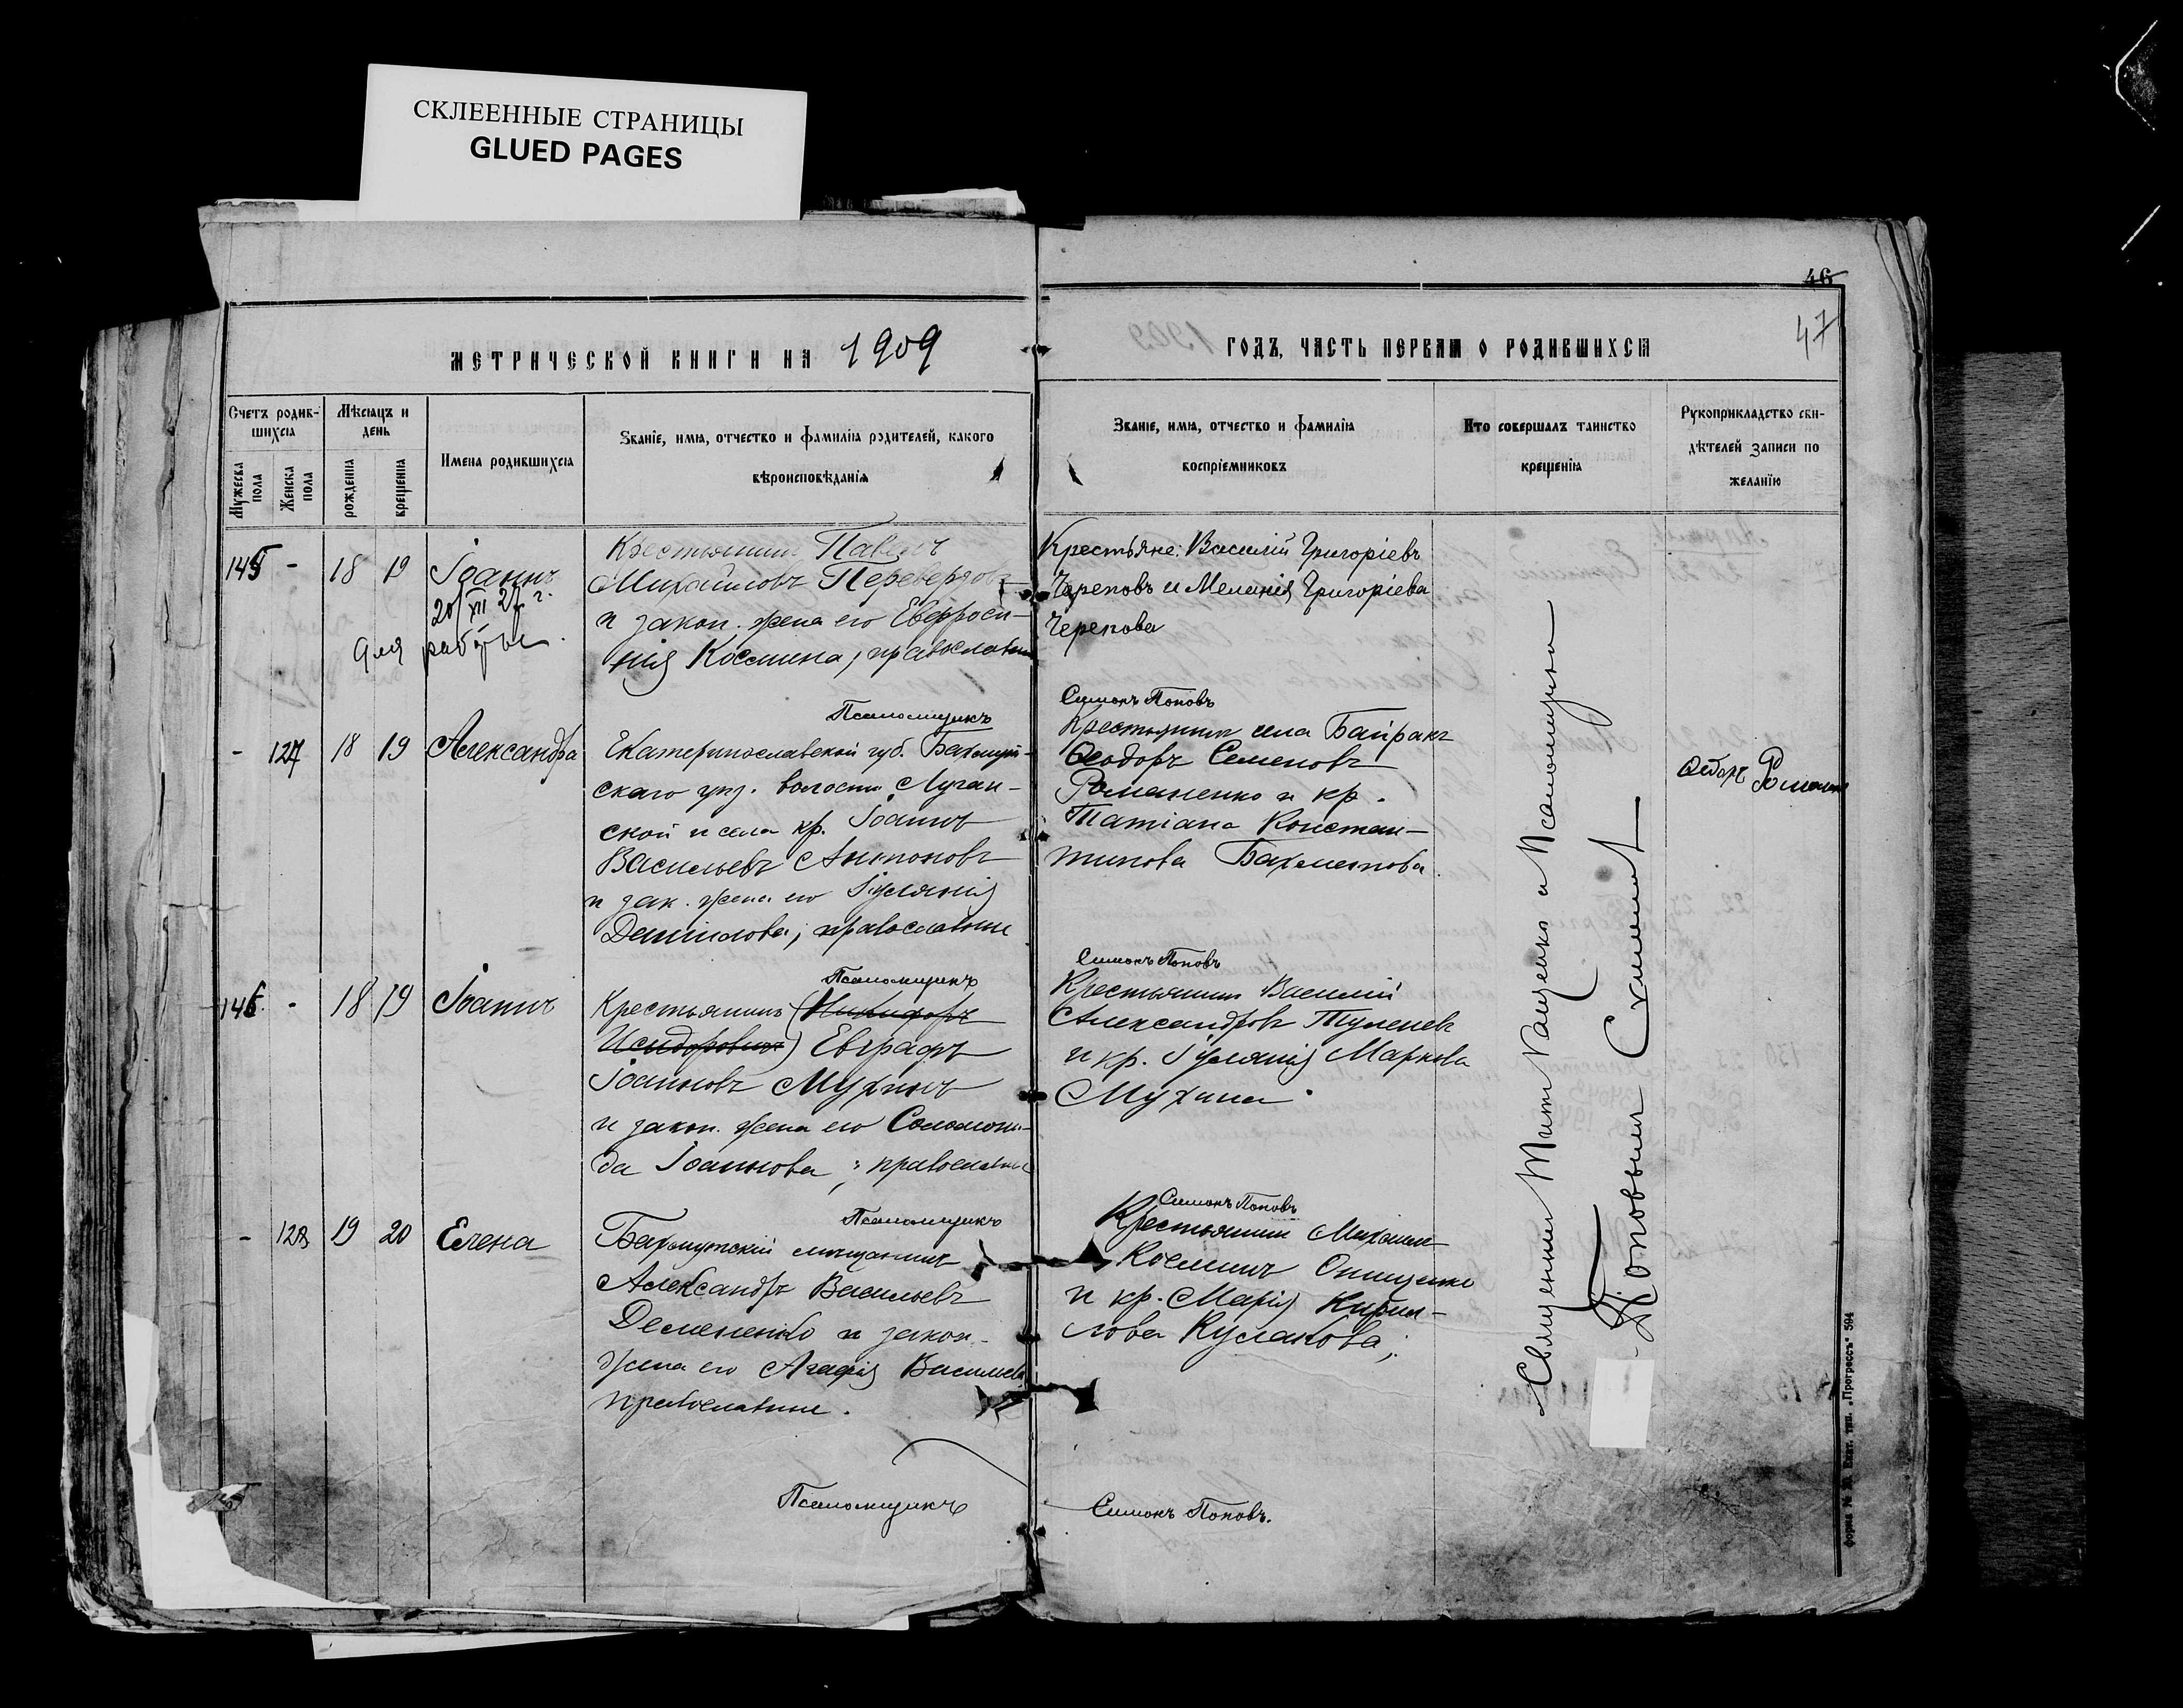 СКЛЕЕННЫЕ СТРАНИЦЫ
GLUED PAGES
46
47
МЕТРИЧЕСКОЙ КНИГИ НА 1909
ГОДЪ, ЧАСТЬ ПЕРВАЯ О РОДИВШИХСЯ
Счетъ родив-
шихся
Мѣсяцъ и
день
Мужеска
пола
Женска
пола
рожденія
крещенія
Имена родившихся
Званіе, имя, отчество и фамилія родителей, какого
вѣроисповѣданія
Званіе, имя, отчество и фамилія
воспріемниковъ
Кто совершалъ таинство
крещенія
Рукоприкладство сви-
дѣтелей записи по
желанію
145 - 18 19 Іоаннъ
20/XII 27 г.
для работы.
Крестьянинъ Павелъ
Михайловъ Переверзовъ
и закон. жена его Евфроси-
нія Космина, православн
Псаломщикъ
Крестьяне: Василій Григоріевъ
Череповъ и Меланія Григоріева
Черепова
Симонъ Поповъ
- 127 18 19 Александра
Екатеринославской губ. Бахмут-
скаго уѣз. волости Луган-
ской и села кр. Іоаннъ
Васильевъ Антоновъ
и зак. жена его Іуліанія
Даніилова, православные
Псаломщикъ
Крестьянинъ села Байракъ
Ѳеодоръ Семеновъ
Романенко и кр.
Татіана Констан-
тинова Бахметова.
Симонъ Поповъ
146 - 18 19 Іоаннъ
Крестьянинъ (Никифоръ
Исидоровичъ) Евграфъ
Іоанновъ Мухинъ
и закон. жена его Соломони-
да Іоаннова; православные
Псаломщикъ
Крестьянинъ Василій
Александровъ Туленевъ
и кр. Іуліанія Маркова
Мухина
Симонъ Поповъ
- 128 19 20 Елена
Бахмутскій мѣщанинъ
Александръ Васильевъ
Демененко и закон.
жена его Агафія Васильева
православные.
Псаломщикъ
Крестьянинъ Михаилъ
Косминъ Онищенко
и кр. Марія Кирил-
лова Кулакова;
Симонъ Поповъ.
Священникъ Титъ и Псаломщикъ
Поповымъ
форма № Екат. тип. „Прогрессъ“ 594